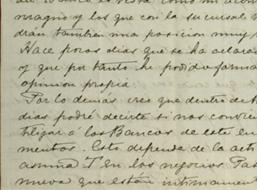 magno y los que con la sucursal
drán tambien una posicion muy
Hace pocos dias que se ha aclara
y que por tanto he podido forma
opinion propia
Por lo demás creo que dentro de
dias podré decirte si nos convie
llegar á los Bancos de este en
mentos. Esto depende de la acti
asuma T en los negocios. Pas
nueva que están intimament